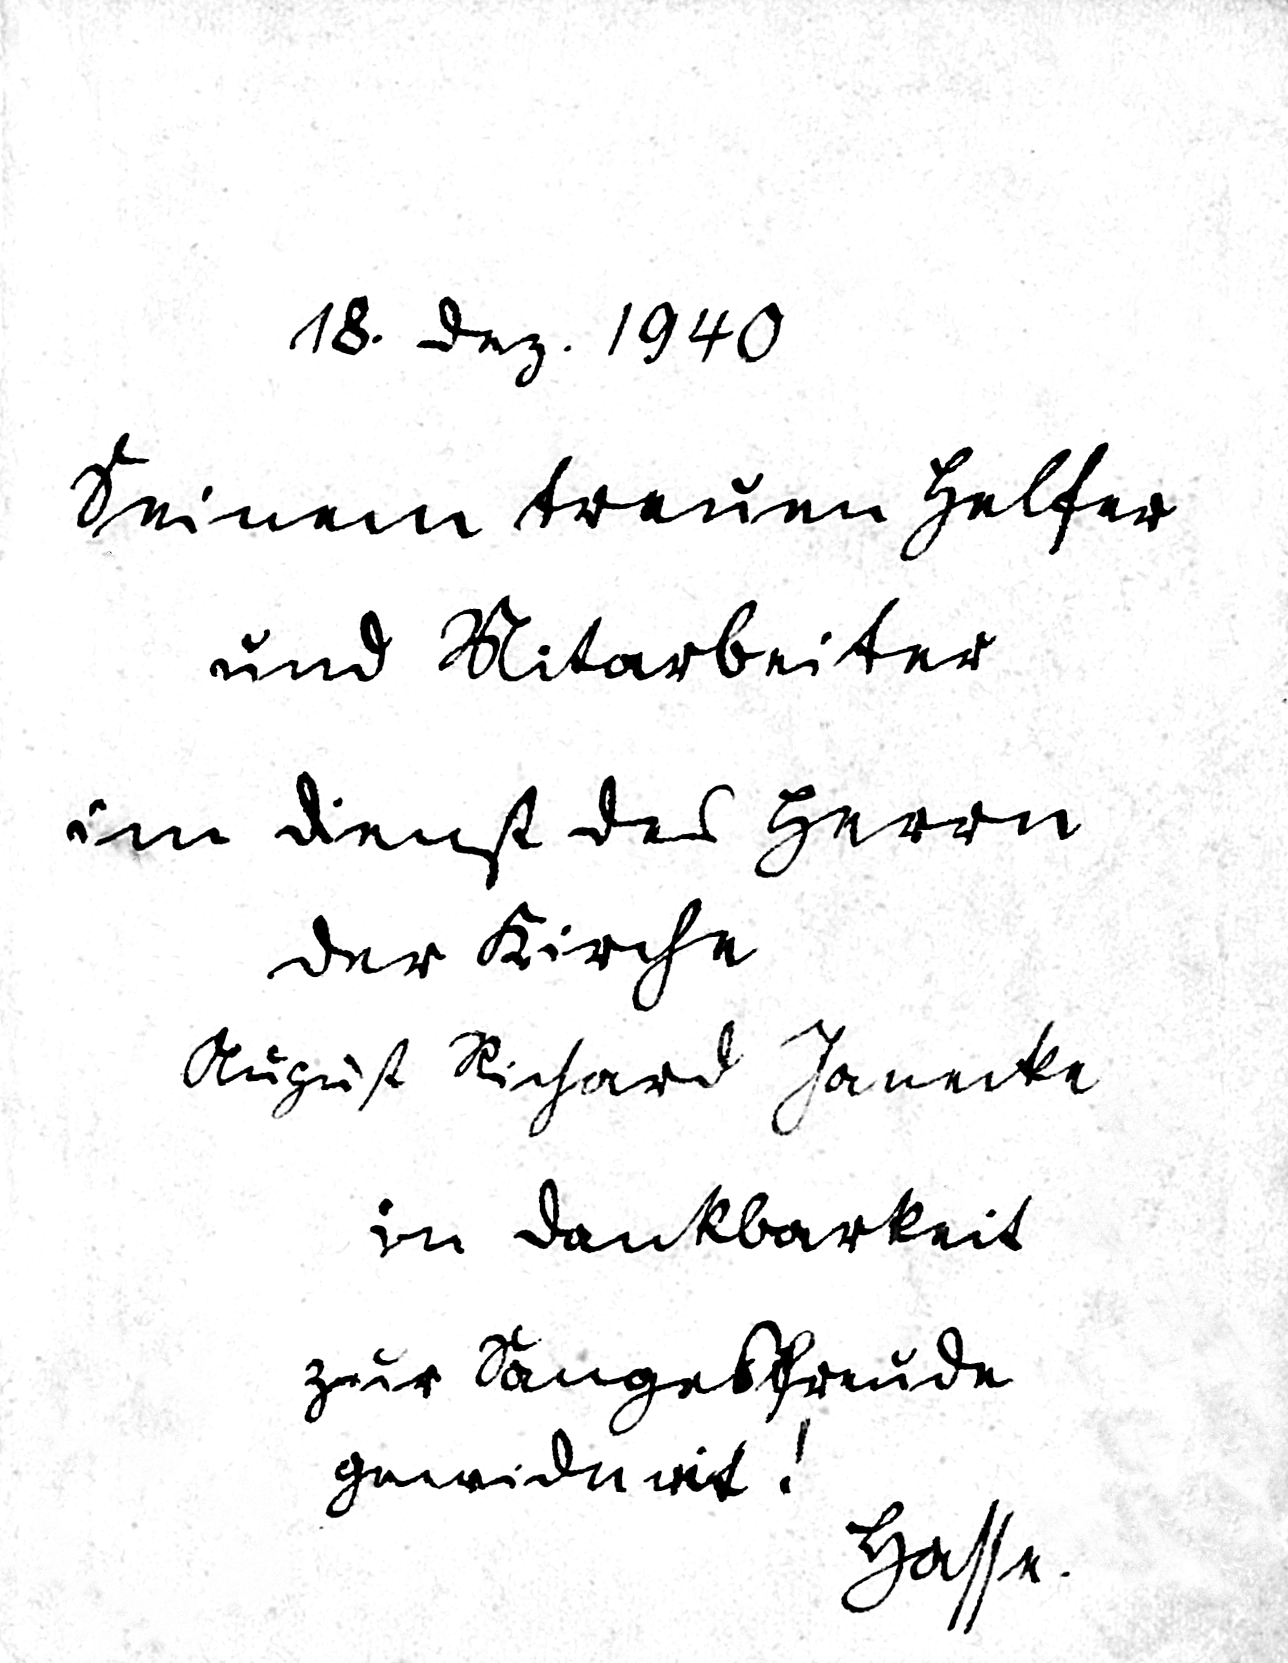 18. Dez. 1940
Seinem treuen Helfer
und Mitarbeiter
im Dienst des Herrn
der Kirche
August Richard Janecke
in Dankbarkeit
zur Sangesfreude
gewidmet!
Hasse.